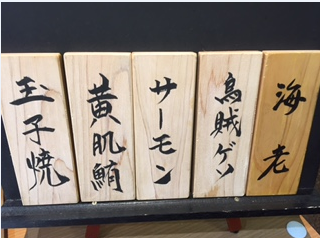 海老
烏賊ゲソ
サーモン
黄肌鮪
玉子焼